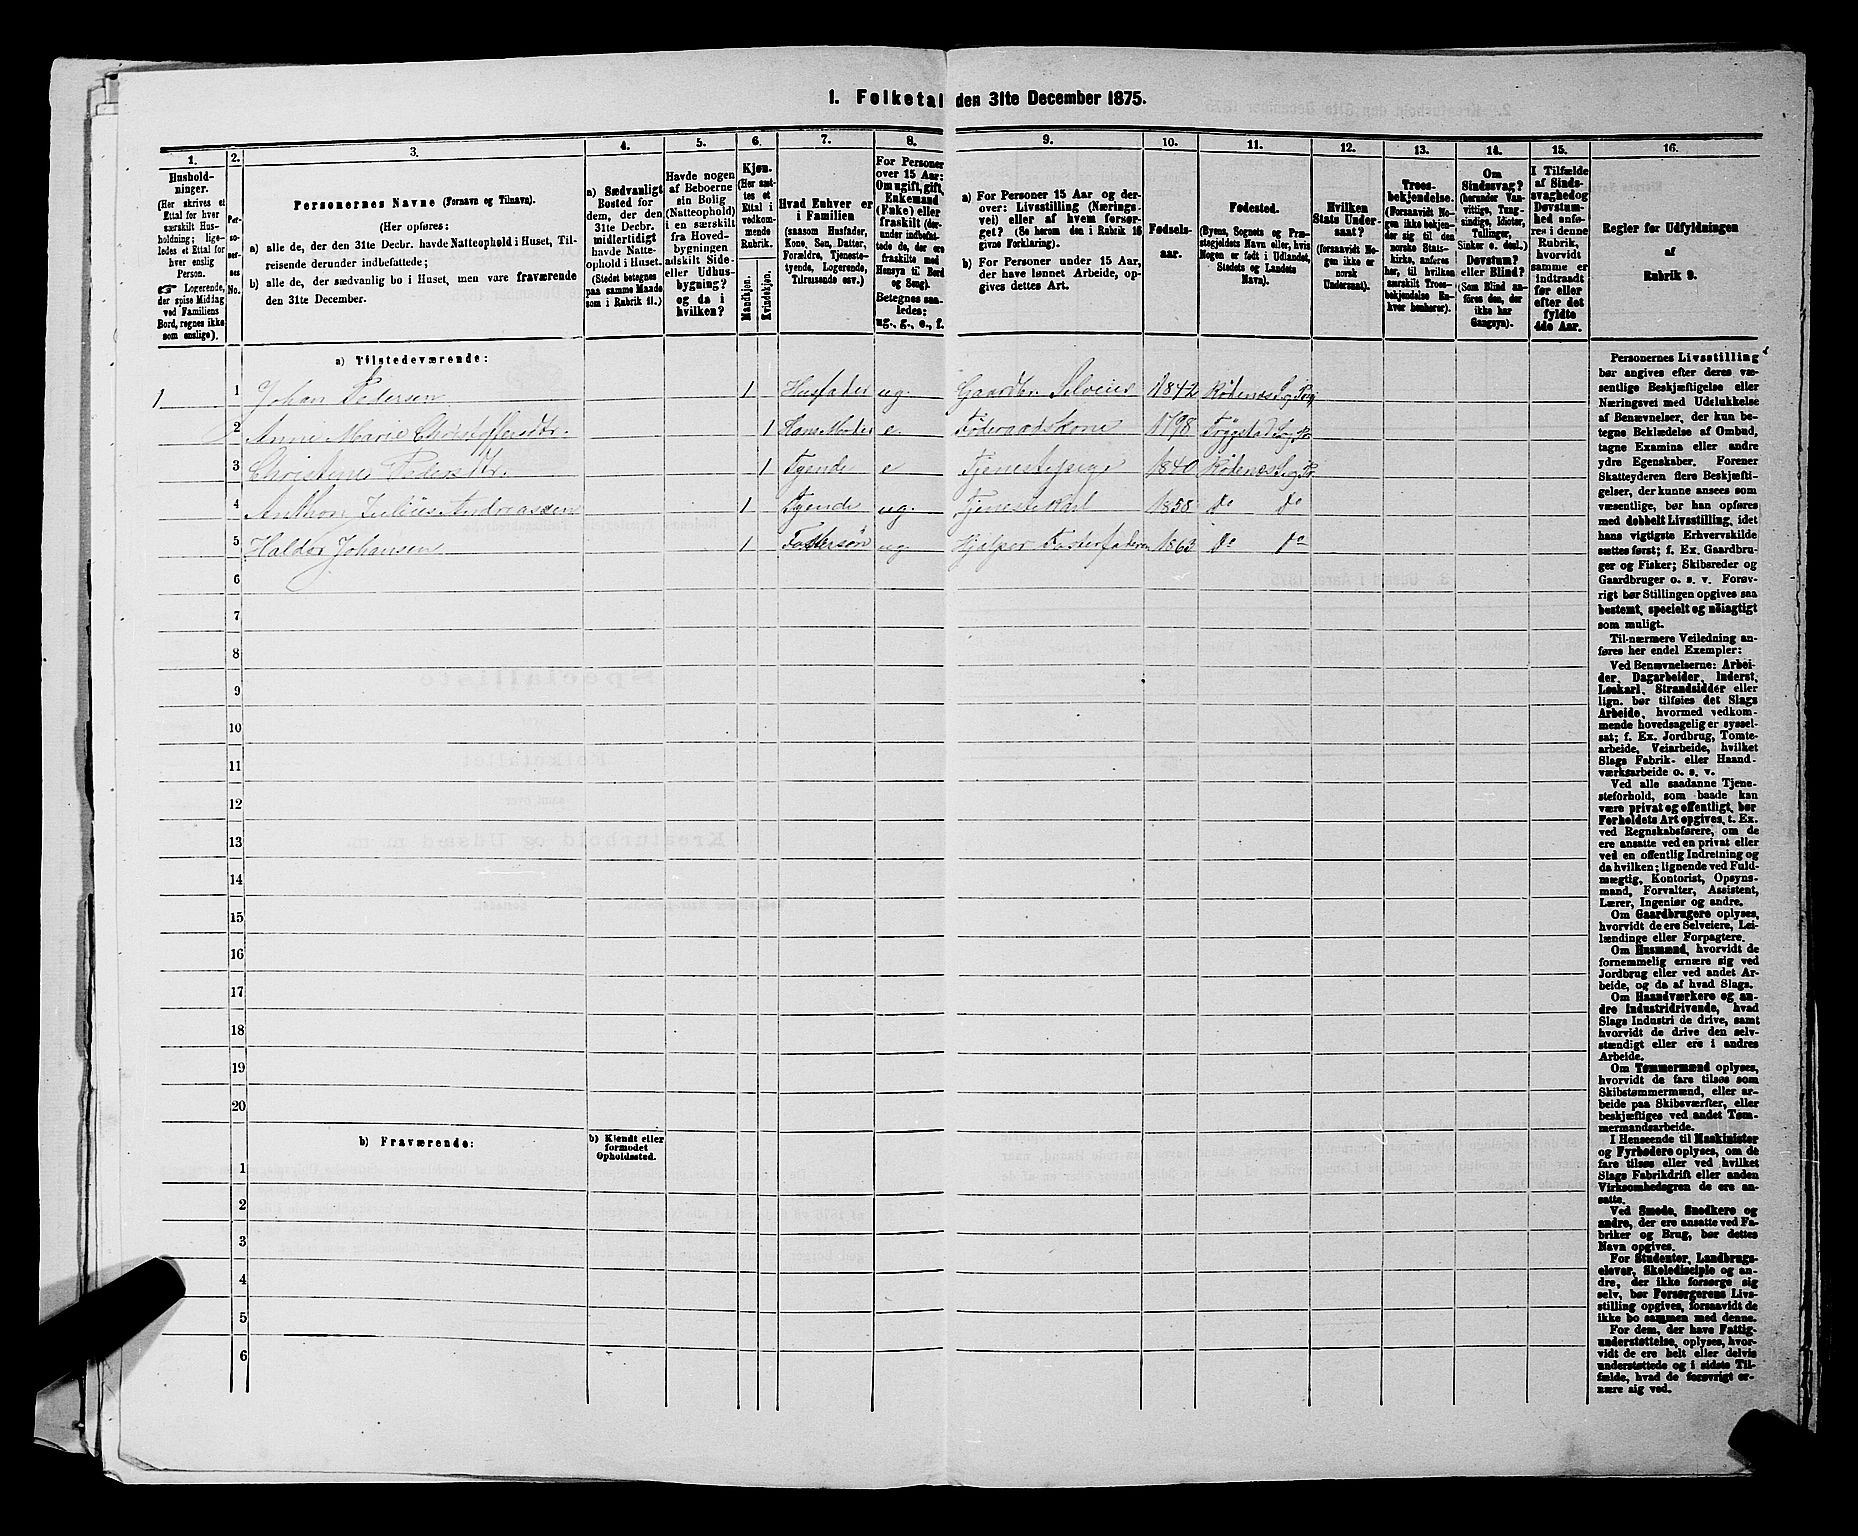 1. Folketal den 31te December 1875.
1. 2. 3. 4. 5. 6. 7. 8. 9. 10. 11. 12. 13. 14. 15. 16.
Hushold-
ninger.
(Her skrives et
Ettal for hver
særskilt Hus-
holdning; lige-
ledes et Ettal for
hver enslig
Person.
☞ Logerende,
der spise Middag
ved Familiens
Bord, regnes ikke
som enslige).
Per-
so-
ner-
nes
No.
Personernes Navne (Fornavn og Tilnavn).
(Her opføres:
a) alle de, der den 31te Decbr. havde Natteophold i Huset, Til-
reisende derunder indbefattede;
b) alle de, der sædvanlig bo i Huset, men vare fraværende
den 31te December.
a) Sædvanligt
Bosted for
dem, der den
31te Decbr.
midlertidigt
havde Natte-
ophold i Huset.
(Stedet betegnes
paa samme Maade
som i Rubrik 11.)
Havde nogen
af Beboerne
sin Bolig
(Natteophold)
i en særskilt
fra Hoved-
bygningen
adskilt Side-
eller Udhus-
bygning?
og da i
hvilken?
Kjøn.
(Her sæt-
tes et
Ettal i
vedkom-
mende
Rubrik.
Mandkjøn.
Kvindekjøn.
Hvad Enhver er
i Familien
(saasom Husfader,
Kone, Søn, Datter,
Forældre, Tjeneste-
tyende, Logerende,
Tilreisende osv.)
For Personer
over 15 Aar:
Om ugift, gift,
Enkemand
(Enke) eller
fraskilt (der-
under indbefat-
tede de, der ere
fraskilte med
Hensyn til Bord
og Seng).
Betegnes saa-
ledes:
ug., g., e., f.
a) For Personer 15 Aar og der-
over: Livsstilling (Nærings-
vei) eller af hvem forsør-
get? (Se herom den i Rubrik 16
givne Forklaring).
b) For Personer under 15 Aar,
der have lønnet Arbeide, op-
gives dettes Art.
Fødsels-
aar.
Fødested.
(Byens, Sognets og Præ-
stegjeldets Navn eller, hvis
Nogen er født i Udlandet,
Stedets og Landets
Navn).
Hvilken
Stats Under-
saat?
(forsaavidt No-
gen ikke er
norsk
Undersaat).
Troes-
bekjendelse.
(Forsaavidt No-
gen ikke bekjen-
der sig til den
norske Stats-
kirke, anføres
her, til hvilken
særskilt Troes-
bekjendelse En-
hver henhører).
Om
Sindssvag?
(herunder Van-
vittige, Tung-
sindige, Idioter,
Tullinger,
Sinker o. desl.)
Døvstum?
eller Blind?
(Som Blind an-
føres den, der
ikke har
Gangsyn).
I Tilfælde
af Sinds-
svaghed og
Døvstum-
hed anfø-
res i denne
Rubrik,
hvorvidt
samme er
indtraadt
før eller
efter det
fyldte
4de Aar.
Regler for Udfyldningen
af
Rubrik 9.
a) Tilstedeværende:
1 1 Johan Pedersen 1 Husfader ug. Gaardbr. Selveier 1842 Rødenæs S. og Prgj
2 Anne Marie Christoffersdtr. 1 Hans Moder e Føderaadskone 1798 Trøgstad S. og Pr
3 Christine Pedersdtr. 1 Tyende e Tjenestepige 1840 Rødenæs S. og Pr
4 Anthon Julius Andreassen 1 Tyende ug. Tjenestekarl 1858 Do Do
5 Haldor Johansen 1 Fostersøn ug. Hjelper Fosterfaderen 1863 Do Do
6
7
8
9
10
11
12
13
14
15
16
17
18
19
20
b) Fraværende:
b) Kjendt eller
formodet
Opholdssted.
1
2
3
4
5
6
Personernes Livsstilling
bør angives efter deres væ-
sentlige Beskjæftigelse eller
Næringsvei med Udelukkelse
af Benævnelser, der kun be-
tegne Beklædelse af Ombud,
tagne Examina eller andre
ydre Egenskaber. Forener
Skatteyderen flere Beskjæfti-
gelser, der kunne ansees som
væsentlige, bør han opføres
med dobbelt Livsstilling, idet
hans vigtigste Erhvervskilde
sættes først; f. Ex. Gaardbru-
ger og Fisker; Skibsreder og
Gaardbruger o. s. v. Forøv-
rigt bør Stillingen opgives saa
bestemt, specielt og nøiagtigt
som muligt.
Til nærmere Veiledning an-
føres her endel Exempler:
Ved Benævnelserne: Arbei-
der, Dagarbeider, Inderst,
Løskarl, Strandsidder eller
lign. bør tilføies det Slags
Arbeide, hvormed vedkom-
mende hovedsagelig er syssel-
sat; f. Ex. Jordbrug, Tomte-
arbeide, Veiarbeide, hvilket
Slags Fabrik- eller Haand-
værksarbeide o. s. v.
Ved alle saadanne Tjene-
steforhold, som baade kan
være privat og offentligt, bør
Forholdets Art opgives, t. Ex.
ved Regnskabsførere, om de
ere ansatte ved en privat eller
ved en offentlig Indretning og
da hvilken; lignende ved Fuld-
mægtig, Kontorist, Opsyns-
mand, Forvalter, Assistent,
Lærer, Ingeniør og andre.
Om Gaardbrugere oplyses,
hvorvidt de ere Selveiere, Lei-
lændinge eller Forpagtere.
Om Husmænd, hvorvidt de
fornemmelig ernære sig ved
Jordbrug eller ved andet Ar-
beide, og da af hvad Slags.
Om Haandværkere og an-
dre Industridrivende, hvad
Slags Industri de drive, samt
hvorvidt de drive den selv-
stændigt eller ere i andres
Arbeide.
Om Tømmermænd oplyses,
hvorvidt de fare tilsøs som
Skibstømmermænd, eller ar-
beide paa Skibsværfter, eller
beskjæftiges ved andet Tøm-
mermandsarbeide.
I Henseende til Maskinister
og Fyrbødere oplyses, om de
fare tilsøs eller ved hvilket
Slags Fabrikdrift eller anden
Virksomhedsgren de ere an-
satte.
Ved Smede, Snedkere og
andre, der ere ansatte ved Fa-
briker og Brug, bør dettes
Navn opgives.
For Studenter, Landbrugs-
elever, Skoledisciple og an-
dre, der ikke forsørge sig
selv, bør Forsørgerens Livs-
stilling opgives, forsaavidt de
ikke bo sammen med denne.
For dem, der have Fattig-
understøttelse, oplyses, hvor-
vidt de ere helt eller delvis
understøttede og i sidste Til-
fælde, hvad de forøvrigt er-
nære sig ved.